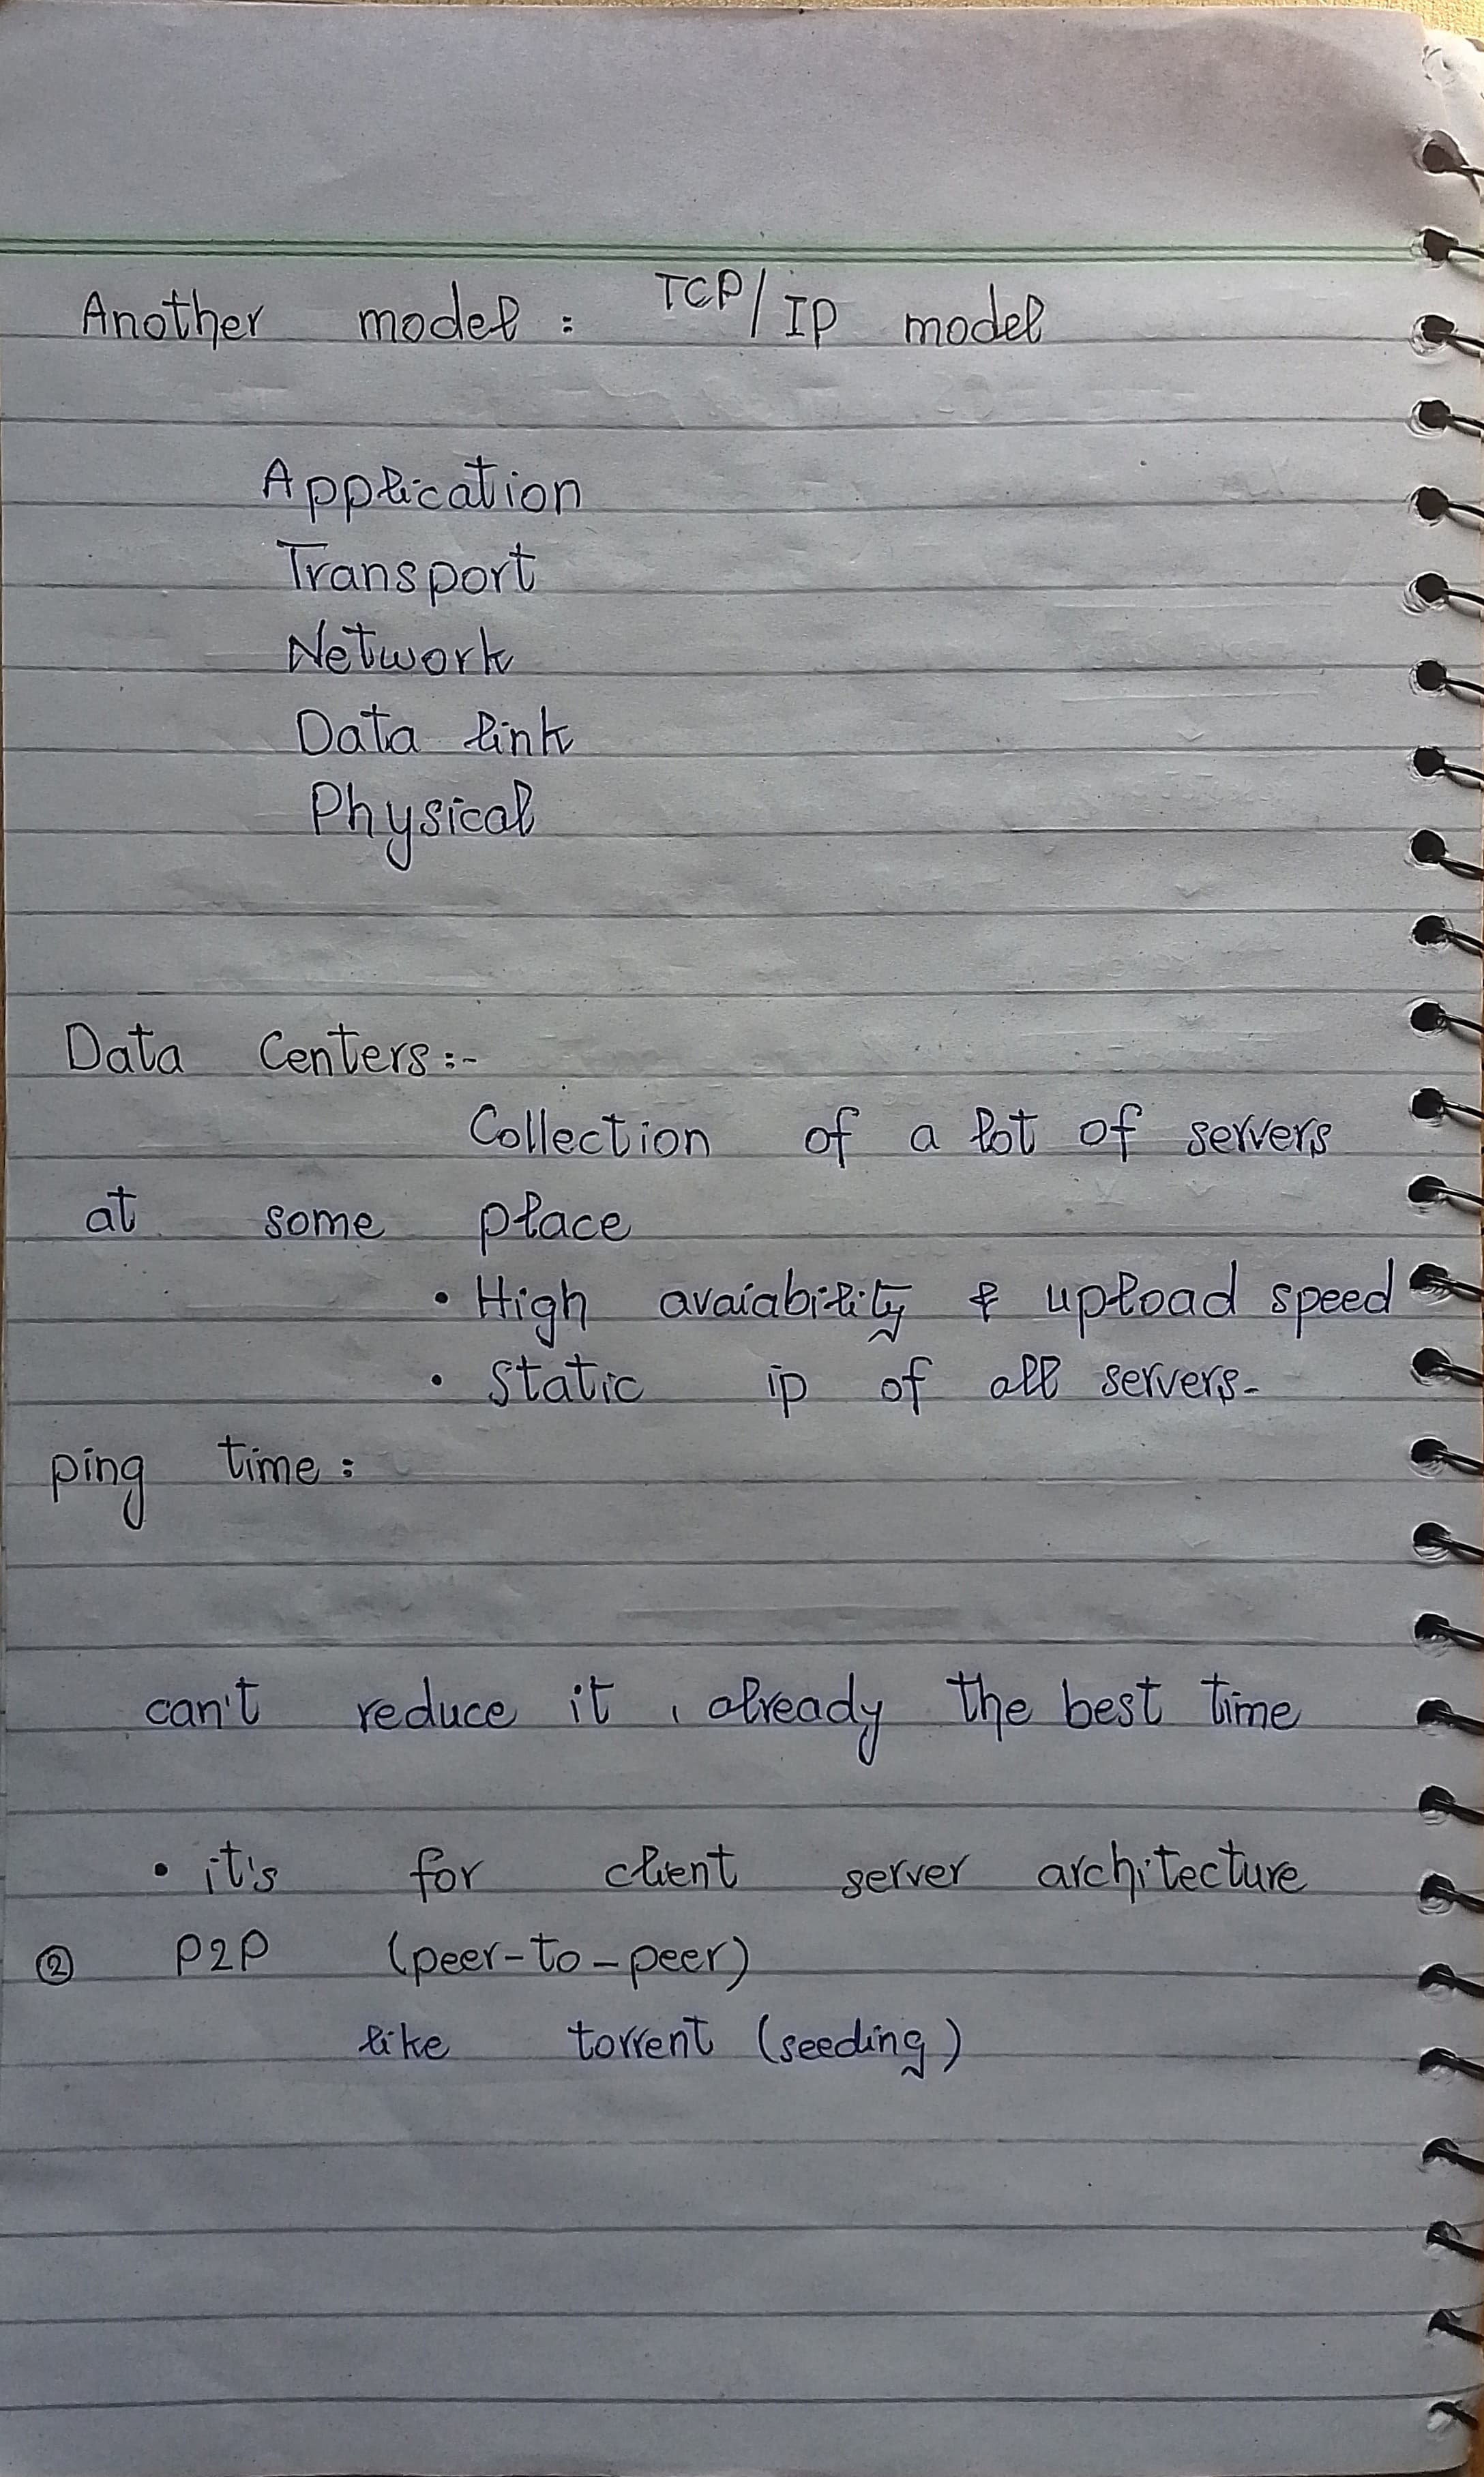 Another model : TCP/IP model
Application
Transport
Network
Data link
Physical
Data Centers:-
Collection of a lot of servers
at some place
• High avaiability & upload speed
• static ip of all servers.
ping time :
can't reduce it , already the best time
• it's for client server architecture
② P2P (peer-to-peer)
like torrent (seeding)